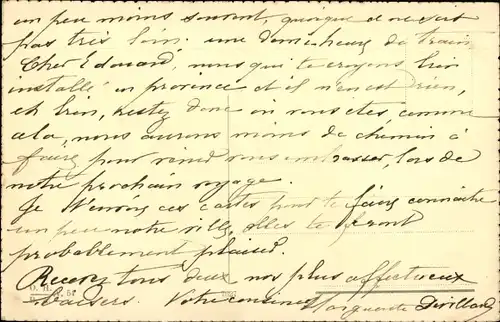 un peu moins souvent, quoique ce ne soit
pas très loin. une demi-heure de train
Cher Edouard, nous qui te croyons bien
installé en province et il n'en est rien,
eh bien, restez donc où vous êtes, comme
cela, nous aurons moins de chemin à
faire pour venir vous embrasser, lors de
notre prochain voyage.
Je t'envoie ces cartes pour te faire connaître
un peu notre ville, elles te feront
probablement plaisir.
Recevez tous deux nos plus affectueux
baisers. Votre cousine Marguerite